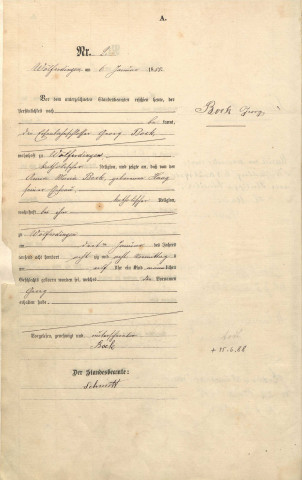 A.
Nr.
Wölferdingen am 6 Januar 18
Vor dem unterzeichneten Standesbeamten erschien heute, der
Persönlichkeit nach
kannt,
der Georg Bock
wohnhaft zu Wölferdingen
katholischer Religion, und zeigte an, daß von der
Anna Maria Bock, geborenen
seiner Ehefrau
katholischer Religion,
wohnhaft bei ihm
zu Wölferdingen
am Januar des Jahres
tausend acht hundert acht zig und acht Vormittags
um Uhr ein Kind männlichen
Geschlechts geboren worden sei, welches die Vornamen
Georg
erhalten habe.
Vorgelesen, genehmigt und unterschrieben
Bock
Der Standesbeamte:
Schmitt
Bock Georg
+ 15.6.88